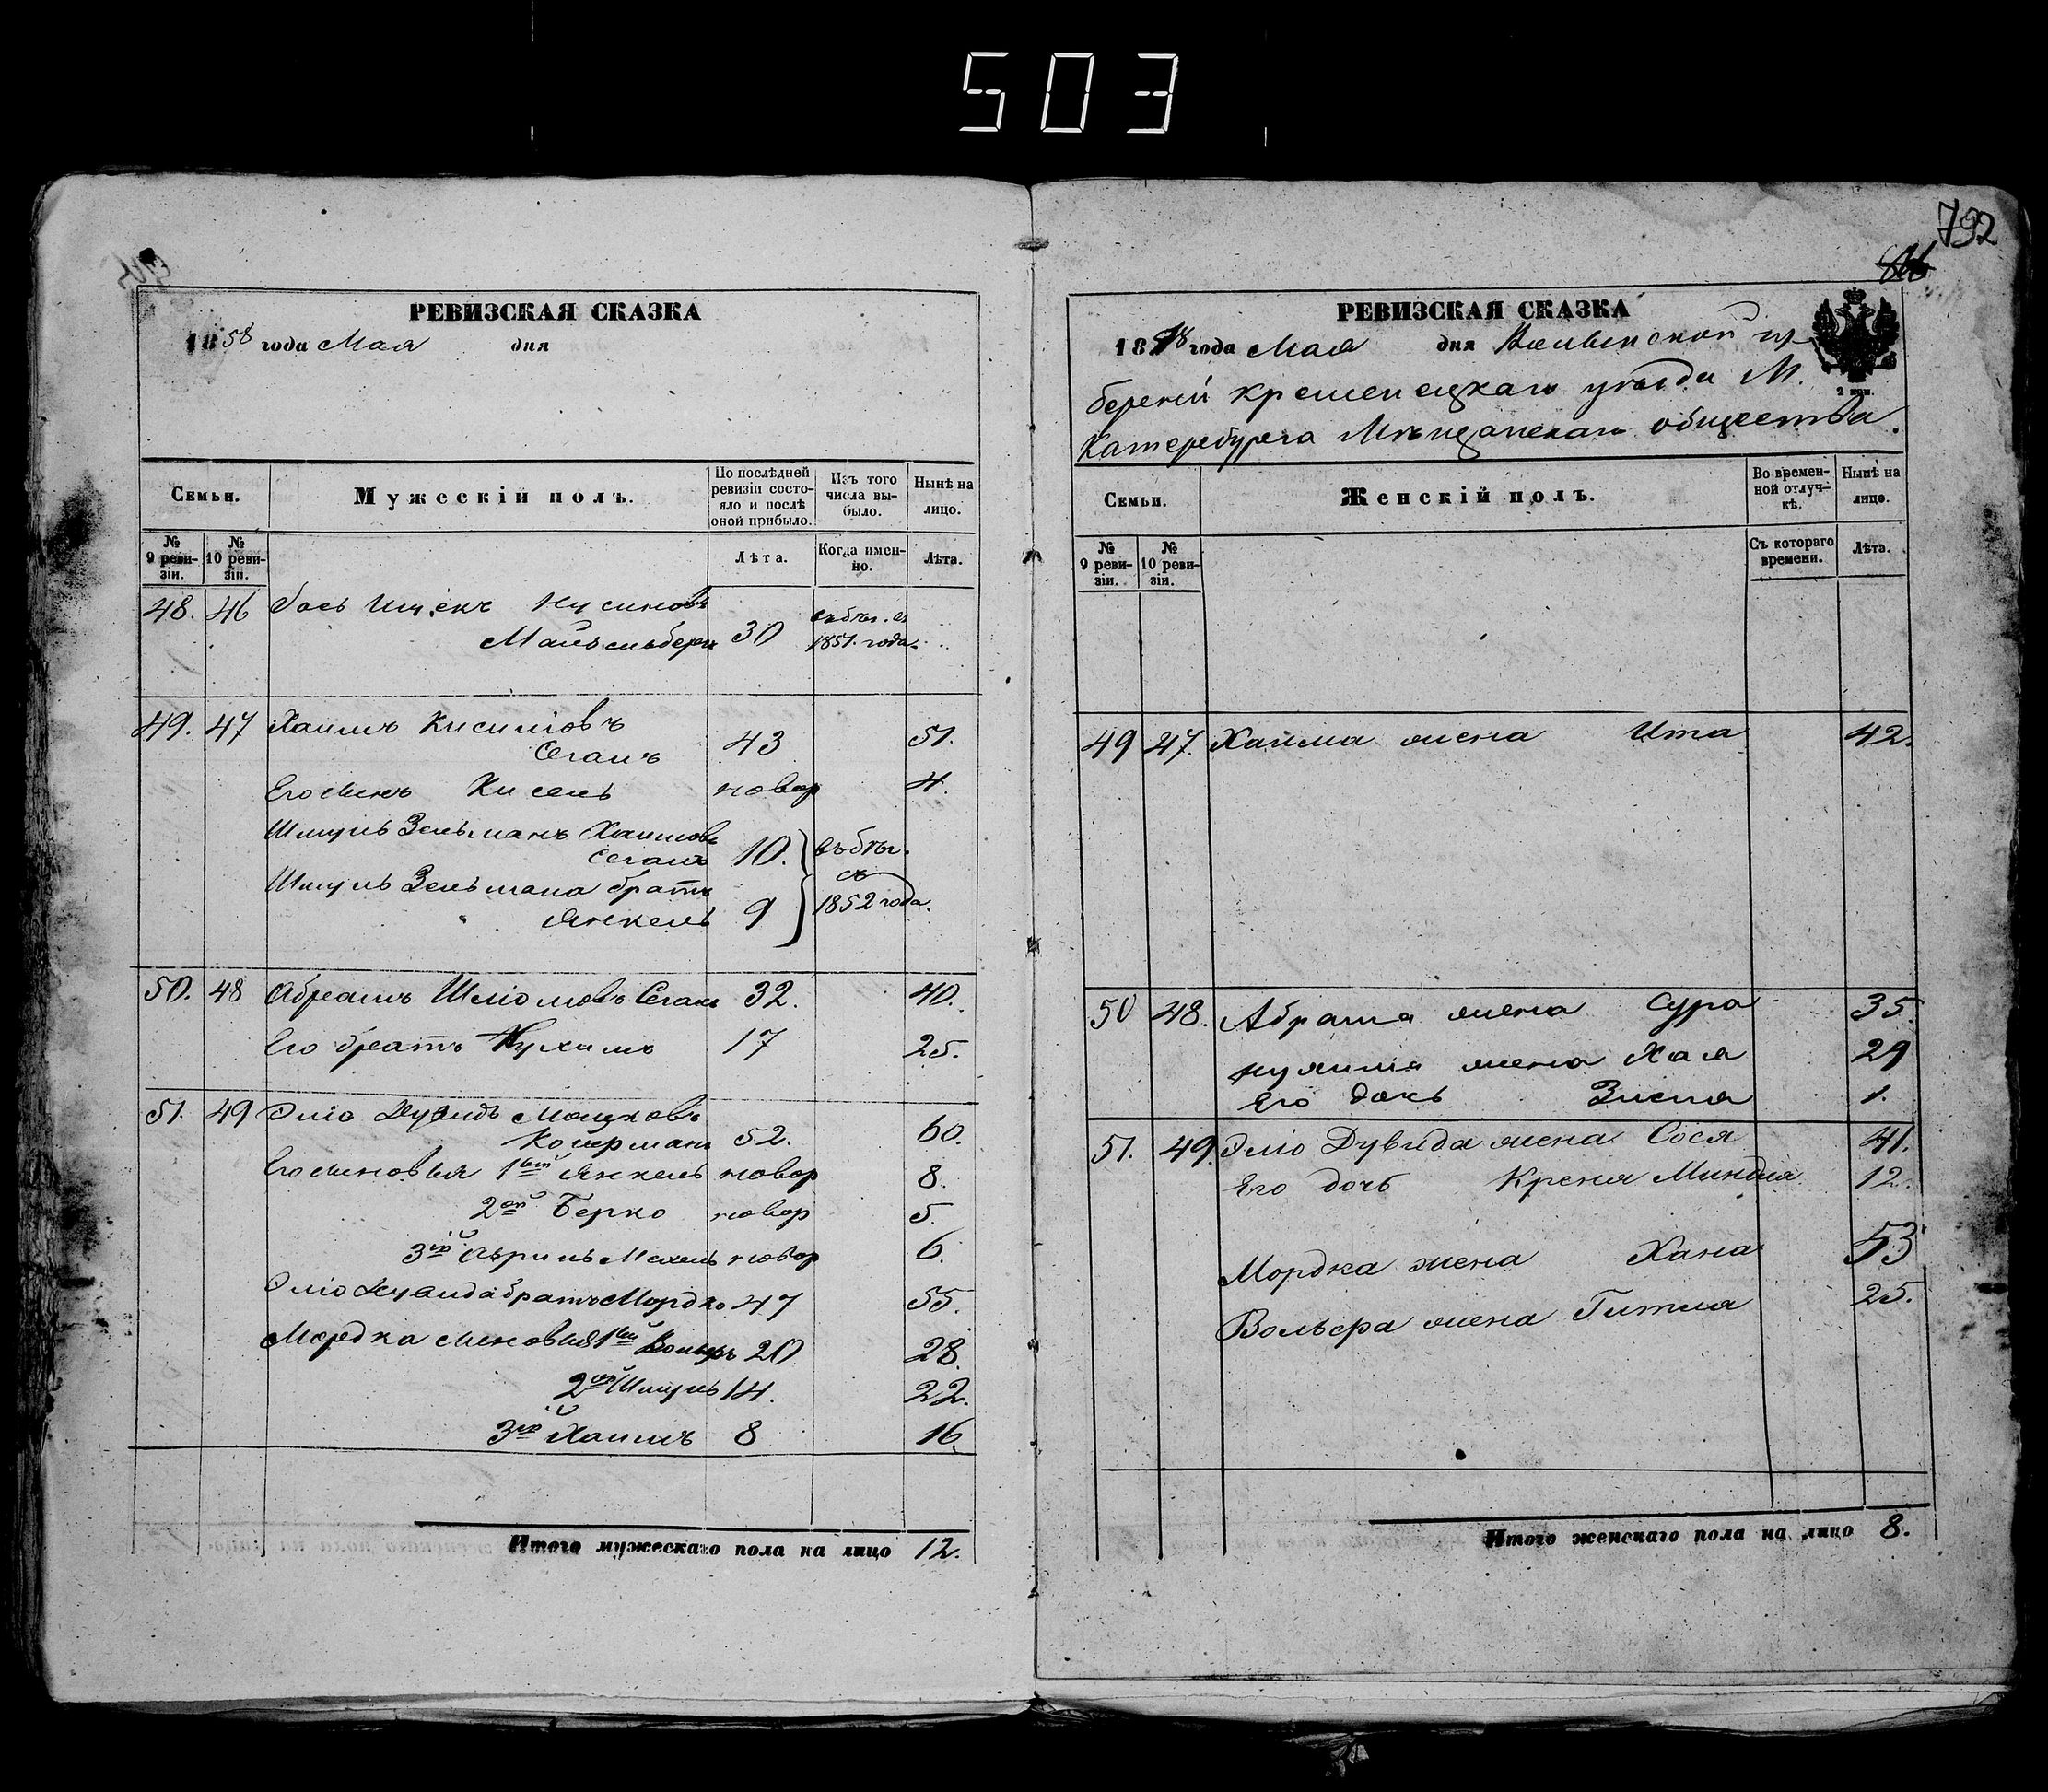 503
792
РЕВИЗСКАЯ СКАЗКА
1858 года Мая дня
Семьи.
Мужескій полъ.
По послѣдней ревизіи состояло и послѣ оной прибыло.
Изъ того числа выбыло.
Нынѣ на лицо.
№ 9 ревизіи.
№ 10 ревизіи.
Лѣта.
Когда именно.
Лѣта.
48. 46 Ицекъ Нусимовъ
30 1851. года
49. 47 Хаимъ Кисилiовъ
Сеганъ 43 51.
Кисель новор 4.
Шмуль Зельманъ Хаимовъ
Сеганъ 10. въ бѣг.
Шмуль Зельмана братъ съ
Янкель 9 1852 года.
50. 48 Абрамъ Шліомовъ Сеганъ 32. 40.
Его братъ Нухимъ 17 25.
51. 49 Эліо Дувидъ Мошковъ
52. 60.
Его сыновья 1ый Янкель новор 8.
2ой Берко новор 5.
3ій новор 6.
Эліо Дувида братъ Мордко 47 55.
Мордка сыновья 1ый Вольфъ 20 28.
2ой Шмуль 14. 22.
3ій Хаимъ 8 16.
Итого мужескаго пола на лицо 12.
РЕВИЗСКАЯ СКАЗКА
1858 года Мая дня Волынской гу-
берніи кременецкаго уѣзда М.
Катербурга Мѣщанскаго общества.
2 коп.
Семьи.
Женскій полъ.
Во временной отлучкѣ.
Нынѣ на лицо.
№ 9 ревизіи.
№ 10 ревизіи.
Съ котораго времени.
Лѣта.
49 47. Хаима жена Ита 42.
50 48. Абрама жена Сура 35.
нухима жена Хая 29
Его дочь Зисля 1.
51. 49. Эліо Дувида жена Сося 41.
Его дочь Крейня Миндля 12.
Мордка жена Хана 53
Вольфа жена Гитля 25.
Итого женскаго пола на лицо 8.